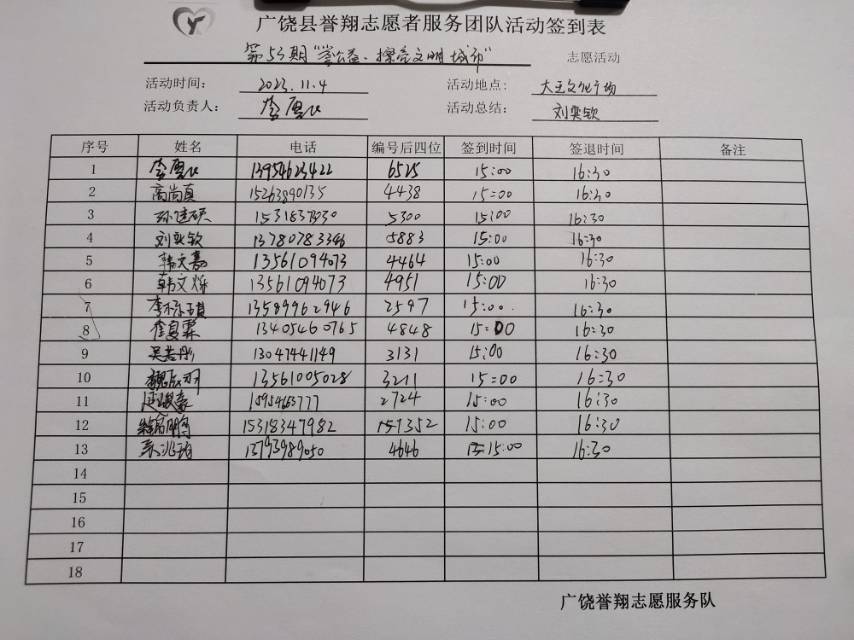 广饶县誉翔志愿者服务团队活动签到表
第53期“尝公益·擦亮文明城市” 志愿活动
活动时间: 2023.11.4 活动地点: 大王文化广场
活动负责人: 活动总结: 刘奕钦
序号 姓名 电话 编号后四位 签到时间 签退时间 备注
1 13954623422 6525 15:00 16:30
2 高尚真 15263890135 4438 15:00 16:30
3 5300 15:00 16:30
4 刘奕钦 13780783346 5883 15:00 16:30
5 韩文嘉 13561094073 4464 15:00 16:30
6 韩文烁 13561094073 4951 15:00 16:30
7 13589962946 2597 15:00 16:30
8 崔夏霖 13405460765 4848 15:00 16:30
9 吴若彤 13047441149 3131 15:00 16:30
10 13561005028 3211 15:00 16:30
11 2724 15:00 16:30
12 15318347982 1352 15:00 16:30
13 13793989050 4646 15:00 16:30
14
15
16
17
18
广饶誉翔志愿服务队